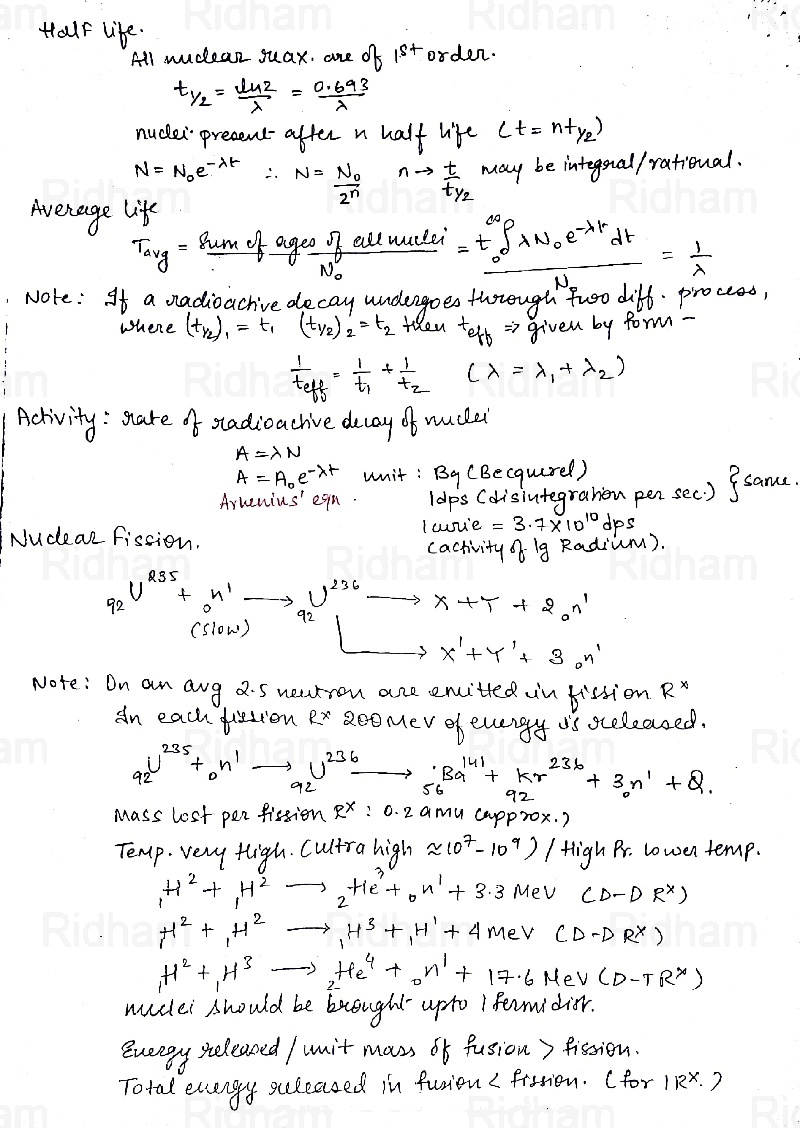 Half life.
All nuclear reax. are of 1st order.
t1/2 = ln2/λ = 0.693/λ
nuclei present after n half life (t = nt1/2)
N = N₀e^-λt ∴ N = N₀/2ⁿ n → t/t1/2 may be integral/rational.
Average life
Tavg = Sum of ages of all nuclei/N₀ = t ₀∫^∞ λN₀e^-λt dt/N₀ = 1/λ
Note: If a radioactive decay undergoes through two diff. process,
where (t1/2)₁ = t₁ (t1/2)₂ = t₂ then teff ⇒ given by form -
1/teff = 1/t₁ + 1/t₂ (λ = λ₁ + λ₂)
Activity: rate of radioactive decay of nuclei
A = λN
A = A₀e^-λt unit: Bq (Becquerel)
Arhenius' eqn. 1dps (disintegration per sec.) } same.
1 curie = 3.7×10¹⁰ dps
Nuclear Fission. (activity of 1g Radium).
₉₂U²³⁵ + ₀n¹ ⟶ ₉₂U²³⁶ ⟶ X + Y + 2₀n¹
(slow) ⟶ X' + Y' + 3₀n¹
Note: On an avg 2.5 neutron are emitted in fission Rˣ
In each fission Rˣ 200 MeV of energy is released.
₉₂U²³⁵ + ₀n¹ ⟶ ₉₂U²³⁶ ⟶ ₅₆Ba¹⁴¹ + ₉₂Kr²³⁶ + 3₀n¹ + Q.
Mass lost per fission Rˣ : 0.2 amu (approx.)
Temp. very High. (ultra high ≈10⁷-10⁹) / High Pr. lower temp.
₁H² + ₁H² ⟶ ₂He³ + ₀n¹ + 3.3 MeV (D-D Rˣ)
₁H² + ₁H² ⟶ ₁H³ + ₁H¹ + 4 MeV (D-D Rˣ)
₁H² + ₁H³ ⟶ ₂He⁴ + ₀n¹ + 17.6 MeV (D-T Rˣ)
nuclei should be brought upto 1 fermi dist.
Energy released / unit mass of fusion > fission.
Total energy released in fusion < fission. (for 1 Rˣ.)
Ridham